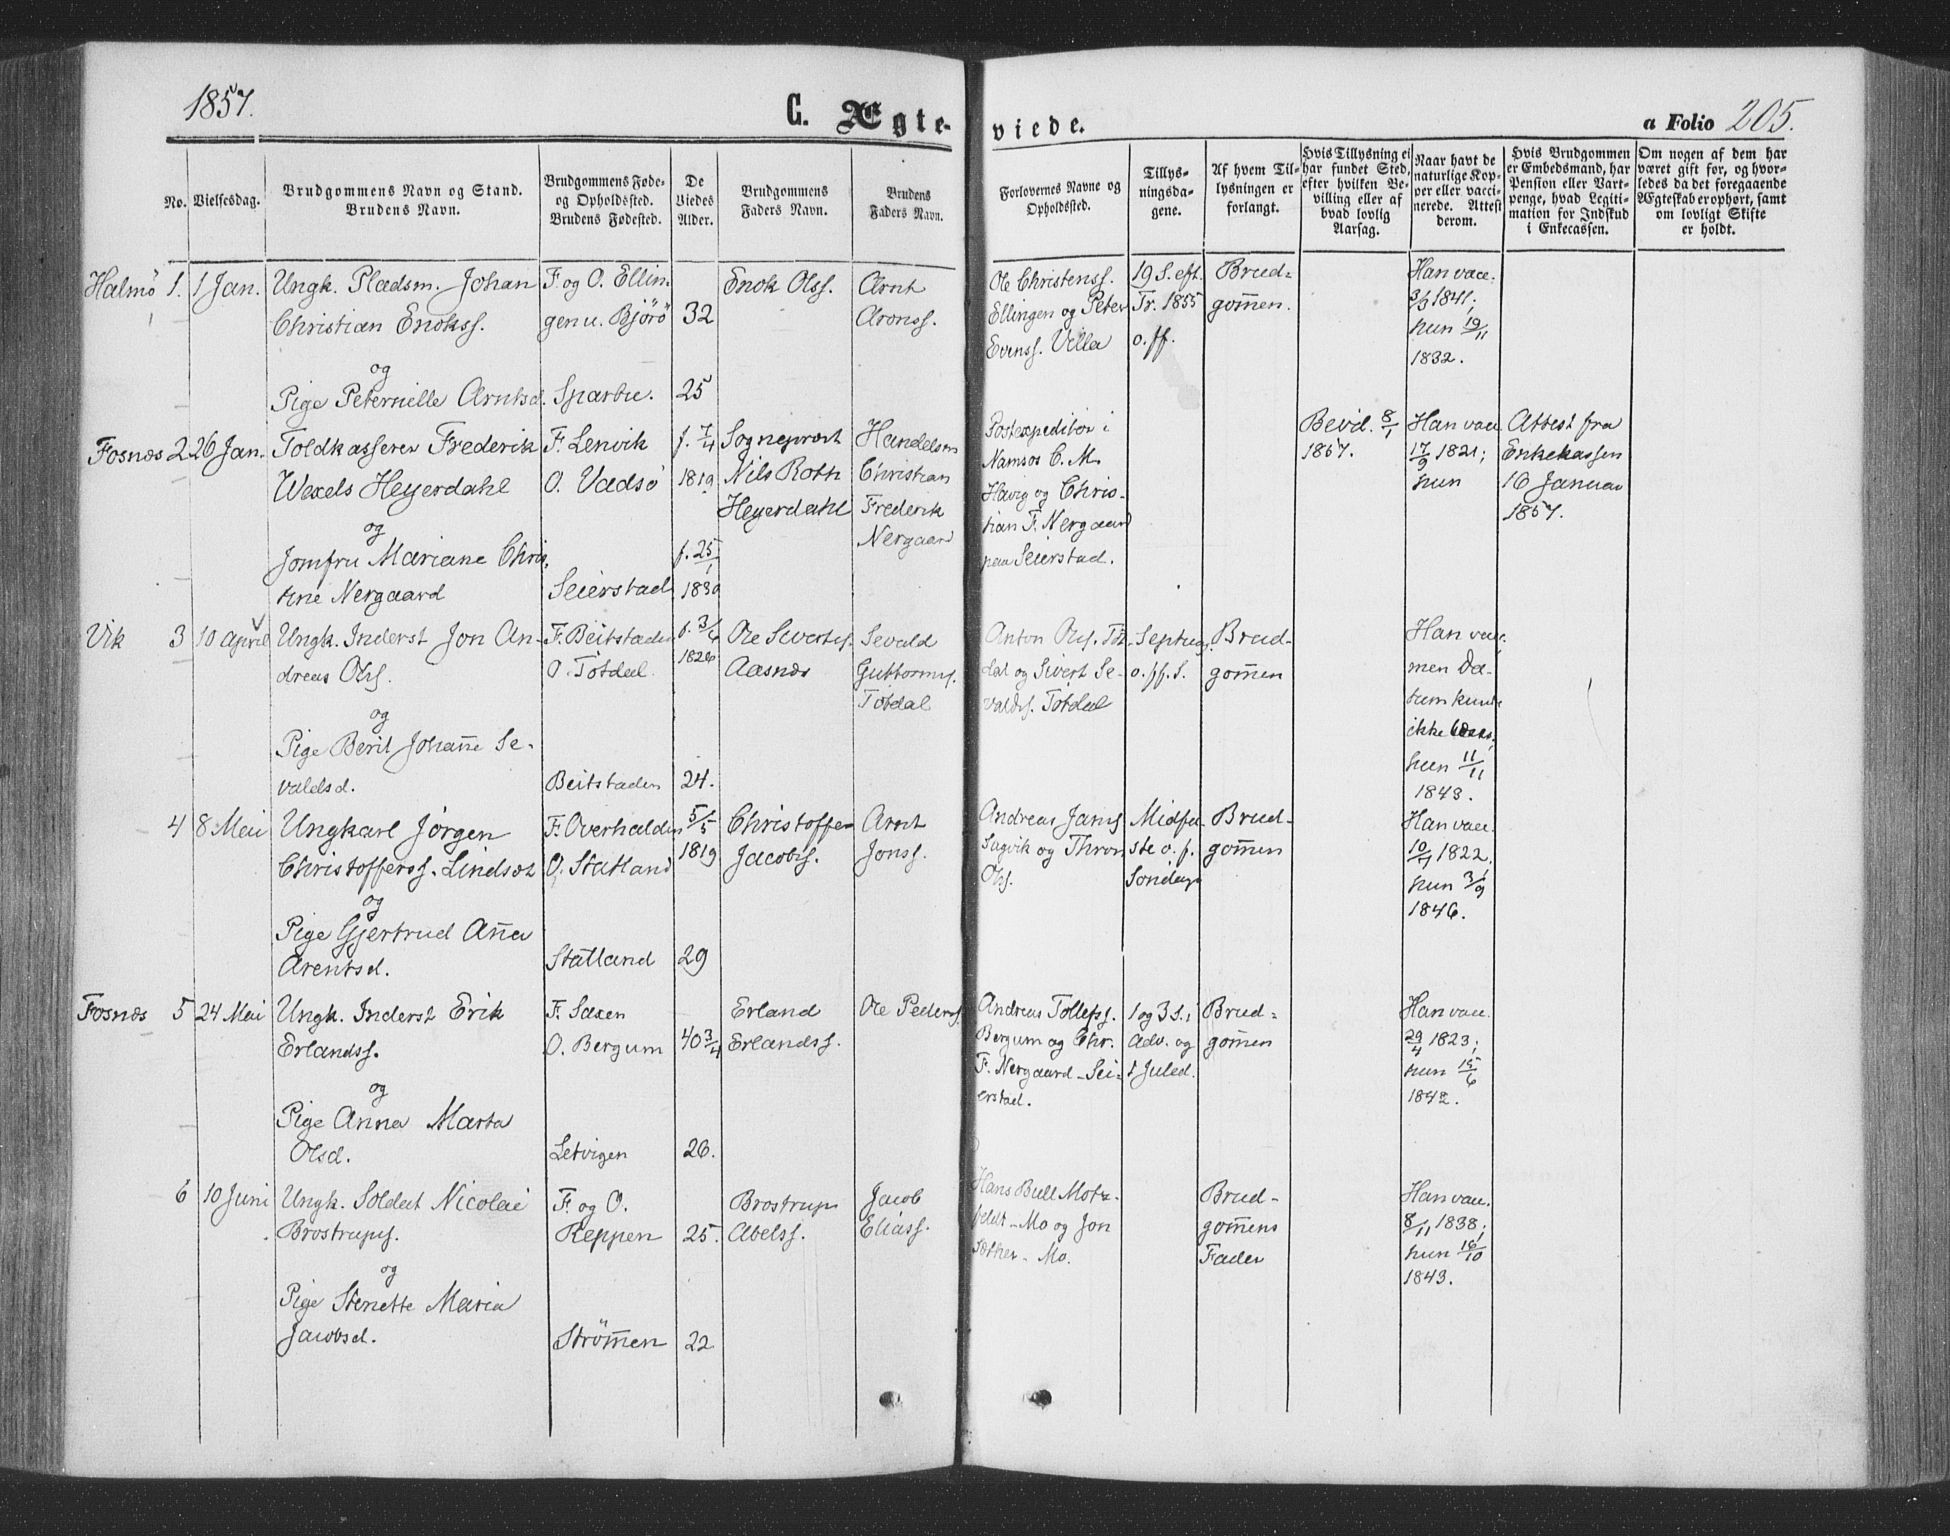 1857.
C. Ægte-
viede.
a Folio 205.
No.
Vielsesdag.
Brudgommens Navn og Stand.
Brudens Navn.
Brudgommens Føde-
og Opholdssted.
Brudens Fødested.
De
Viedes
Alder.
Brudgommens
Faders Navn.
Brudens
Faders Navn.
Forlovernes Navne og
Opholdssted.
Tillys-
ningsda-
gene.
Af hvem Til-
lysningen er
forlangt.
Hvis Tillysning ei
har fundet Sted,
efter hvilken Be-
villing eller af
hvad lovlig
Aarsag.
Naar havt de
naturlige Kop-
per eller vacci-
nerede. Attest
derom.
Hvis Brudgommen
er Embedsmand, har
Pension eller Vart-
penge, hvad Legiti-
mation for Indskud
i Enkecassen.
Om nogen af dem har
været gift for, og hvor-
ledes da det foregaaende
Ægteskab er ophørt, samt
om lovligt Skifte
er holdt.
Halmö 1. 1 Jan.
Ungk. Pladsm. Johan
Christian Enokss.
og
Pige Peternille Arntsd.
F. og O. Ellin-
gen u. Bjørø
Sparbu.
32
25
Enok Olss.
Arnt
Aronss.
Ole Christenss.
Ellingen og Peter
Evenss. Villa
19 S. eft.
Tr. 1855
o. ff.
Brud-
gom̄en.
Han vacc.
3/3 1841;
hun 19/11
1832.
Fosnæs 2 26 Jan.
Toldkasserer Frederik
Wexels Heyerdahl
og
Jomfru Mariane Chris-
tine Nergaard
F. Lenvik
O. Vadsø
Seierstad
f. 7/4
1819
f. 25/1
1830
Sognepræst
Nils Roth
Heyerdahl
Handelsm
Christian
Frederik
Nergaard
Postexpeditør i
Namsos C. M.
Havig og Chris-
tian F. Nergaard
paa Seierstad.
Bevid. 8/1
1857.
Han vacc.
17/9 1821;
hun
Attest fra
Enkekassen
16 Januar
1857.
Vik 3 10 April
Ungk. Inderst Jon An-
dreas Olss.
og
Pige Berit Johan̄e Se-
valdsd.
F. Beitstaden
O. Tötdal
Beitstaden
f. 3/6
1826
24.
Ole Sivertss.
Aasnæs
Sevald
Guttormss.
Tötdal
Anton Olss. Töt-
dal og Sivert Se-
valds. Tötdal
Septuag.
o. ff. S.
Brud-
gom̄en
Han vacc.
men Da-
tum kunde
ikke læses;
hun 11/11
1843.
4 8 Mai
Ungkarl Jörgen
Christofferss. Lindsæt
og
Pige Gjertrud An̄a
Arentsd.
F. Overhalden
O. Statland
Statland
5/5
1819
29
Christoffer
Jacobss.
Arnt
Jonss.
Andreas Janss
Sagvik og Thron
Olss.
Midfa-
ste o. f.
Söndage
Brud-
gom̄en
Han vacc.
10/11 1822;
hun 3/9
1846.
Fosnæs 5 24 Mai
Ungk. Inderst Erik
Erlandss.
og
Pige Anna Marta
Olsd.
F. Saxen
O. Bergum
Letvigen
40 3/4
26.
Erland
Erlandss.
Ole Pederss.
Andreas Tollefss.
Bergum og Chr.
F. Nergaard - Sei-
erstad.
1 og 3 S. i
Adv. og
1 Juled.
Brud-
gom̄en
Han vacc.
29/4 1823;
hun 15/6
1842.
6 10 Juni
Ungk. Soldat Nicolai
Brostrups.
og
Pige Stenette Maria
Jacobsd.
F. og O.
Reppen
Ström̄en
25.
22
Brostrup
Abelss.
Jacob
Eliass.
Hans Bull Motz-
feldt - Mo og Jon
Sæther - Mo.
Brud-
gom̄ens
Fader
Han vacc.
8/11 1838;
hun 16/10
1843.